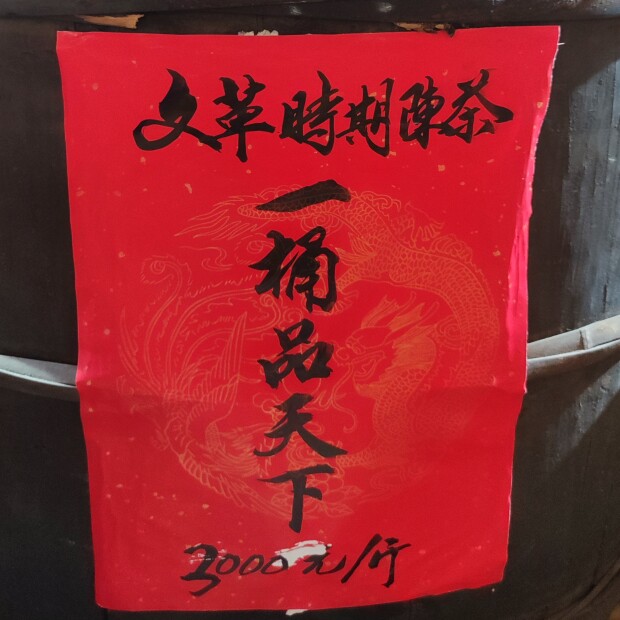 文革時期陳茶
一桶品天下
3000元/斤